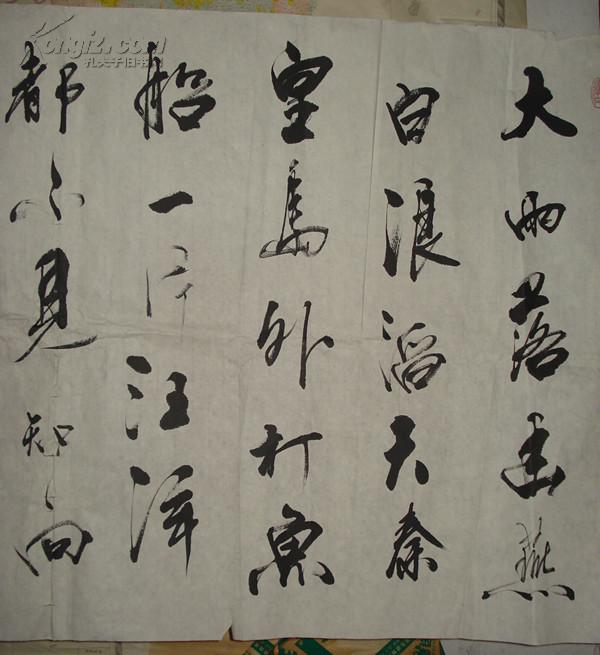 大雨落幽燕
白浪滔天秦
皇島外打魚
船一片汪洋
都不見知向
Kongfz.com
孔夫子旧书网